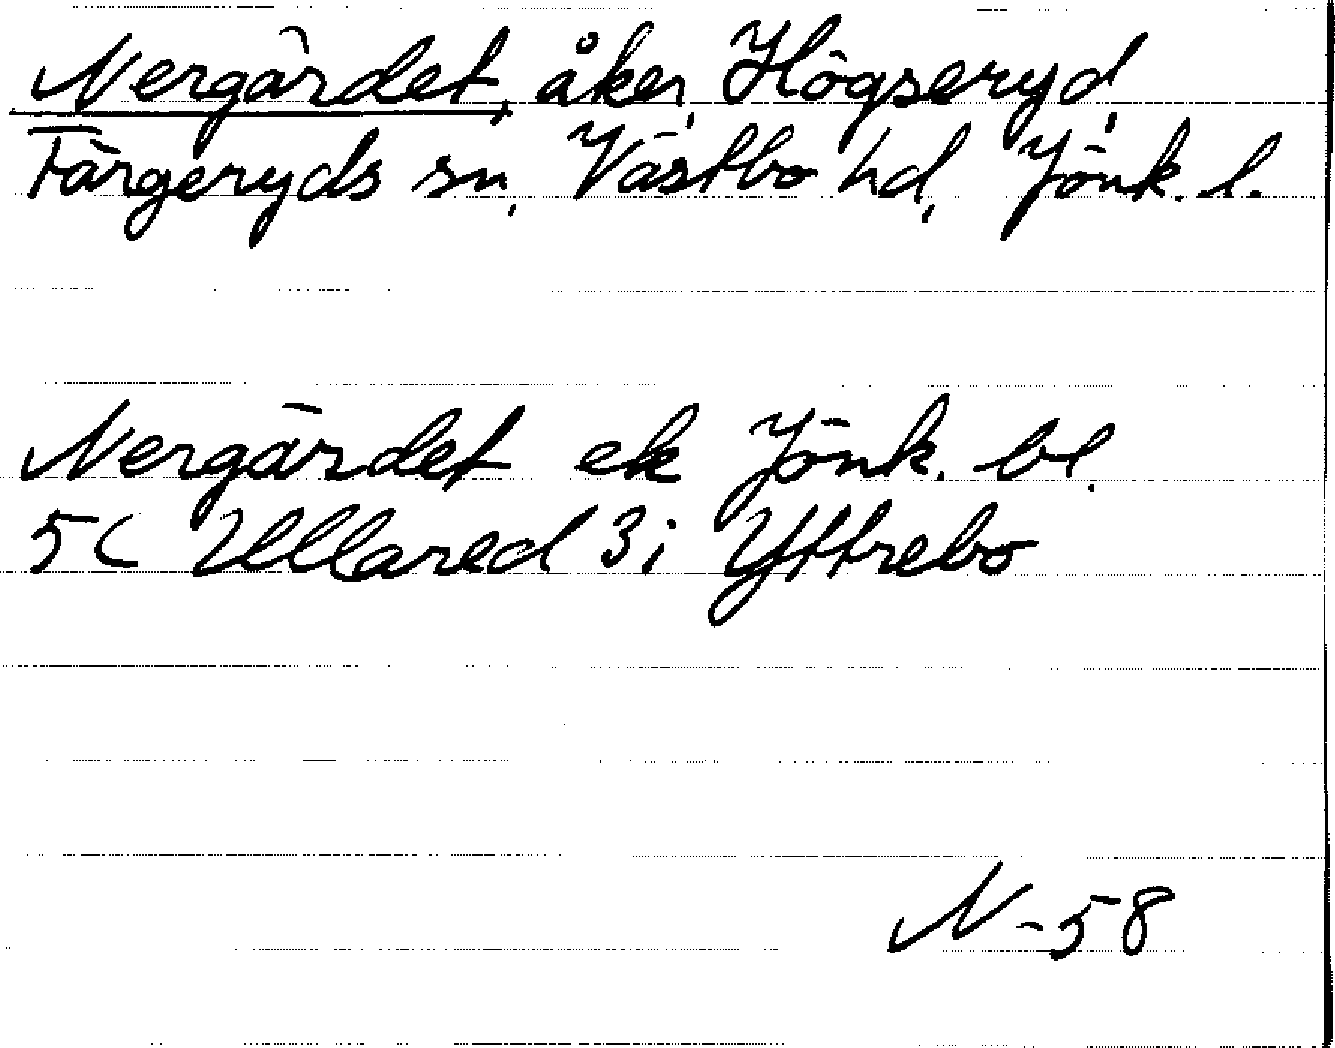 Nergärdet, åker, Högseryd,
Färgeryds sn, Västbo hd, Jönk. l.
Nergärdet ek Jönk. bl.
5C Ullared 3i Yttrebo
N-58